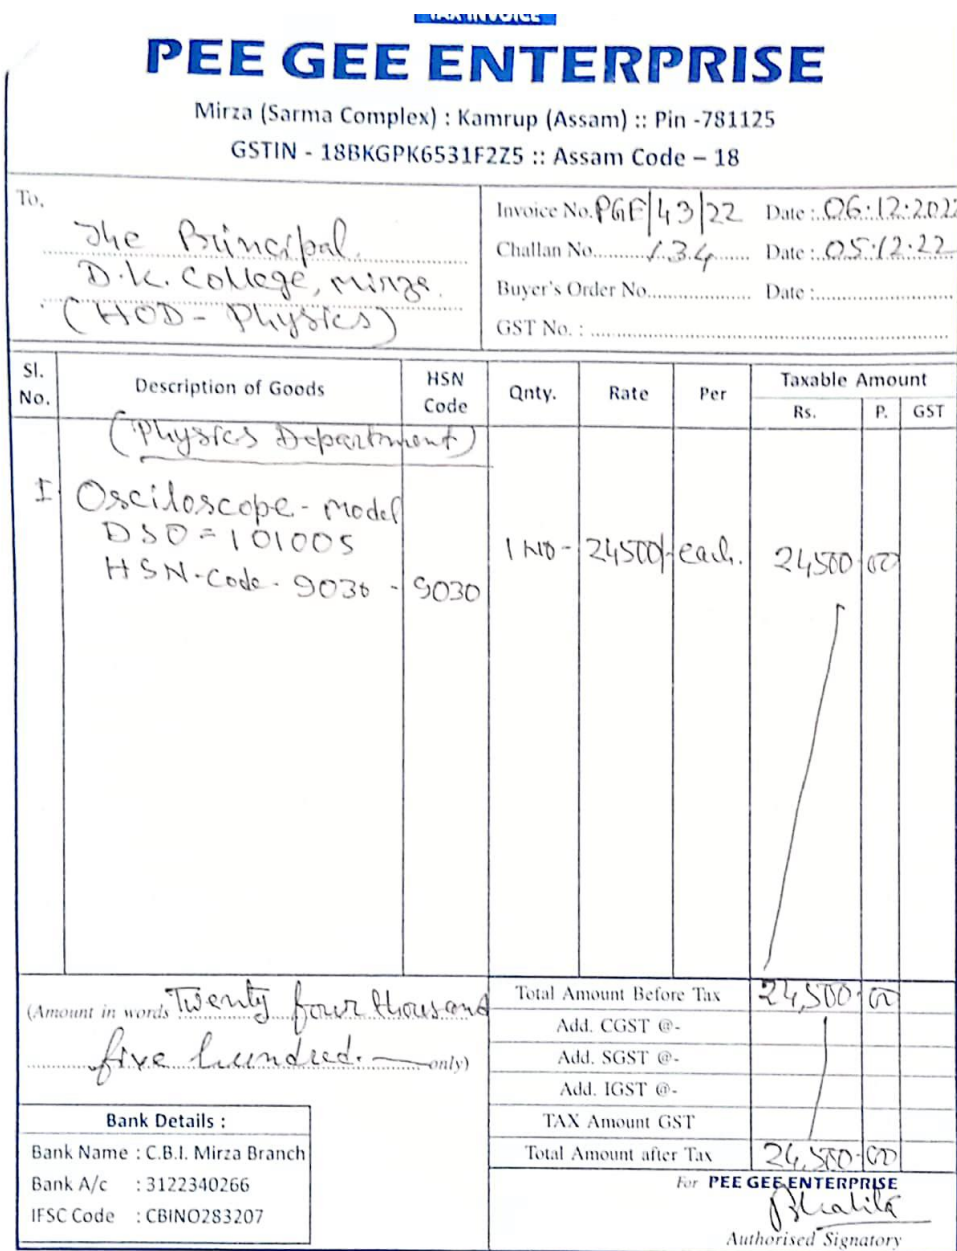 TAX INVOICE
PEE GEE ENTERPRISE
Mirza (Sarma Complex) : Kamrup (Assam) :: Pin -781125
GSTIN - 18BKGPK6531F2Z5 :: Assam Code – 18
To,
The Principal.
D.K. College, Mirza.
(HOD - Physics)
Invoice No. PGE/43/22 Date : 06.12.2022
Challan No. 134 Date : 05.12.22
Buyer's Order No. Date :
GST No. :
Sl. No. Description of Goods HSN Code Qnty. Rate Per Taxable Amount
Rs. P. GST
(Physics Department)
I Osciloscope - Model
DSO = 101005
1 NO - 24500/- each. 24,500 00
HSN-Code - 9030 - 9030
(Amount in words Twenty four thousand
five hundred. only)
Total Amount Before Tax 24,500 00
Add. CGST @-
Add. SGST @-
Add. IGST @-
TAX Amount GST
Total Amount after Tax 24,500 00
Bank Details :
Bank Name : C.B.I. Mirza Branch
Bank A/c : 3122340266
IFSC Code : CBINO283207
For PEE GEE ENTERPRISE
Authorised Signatory